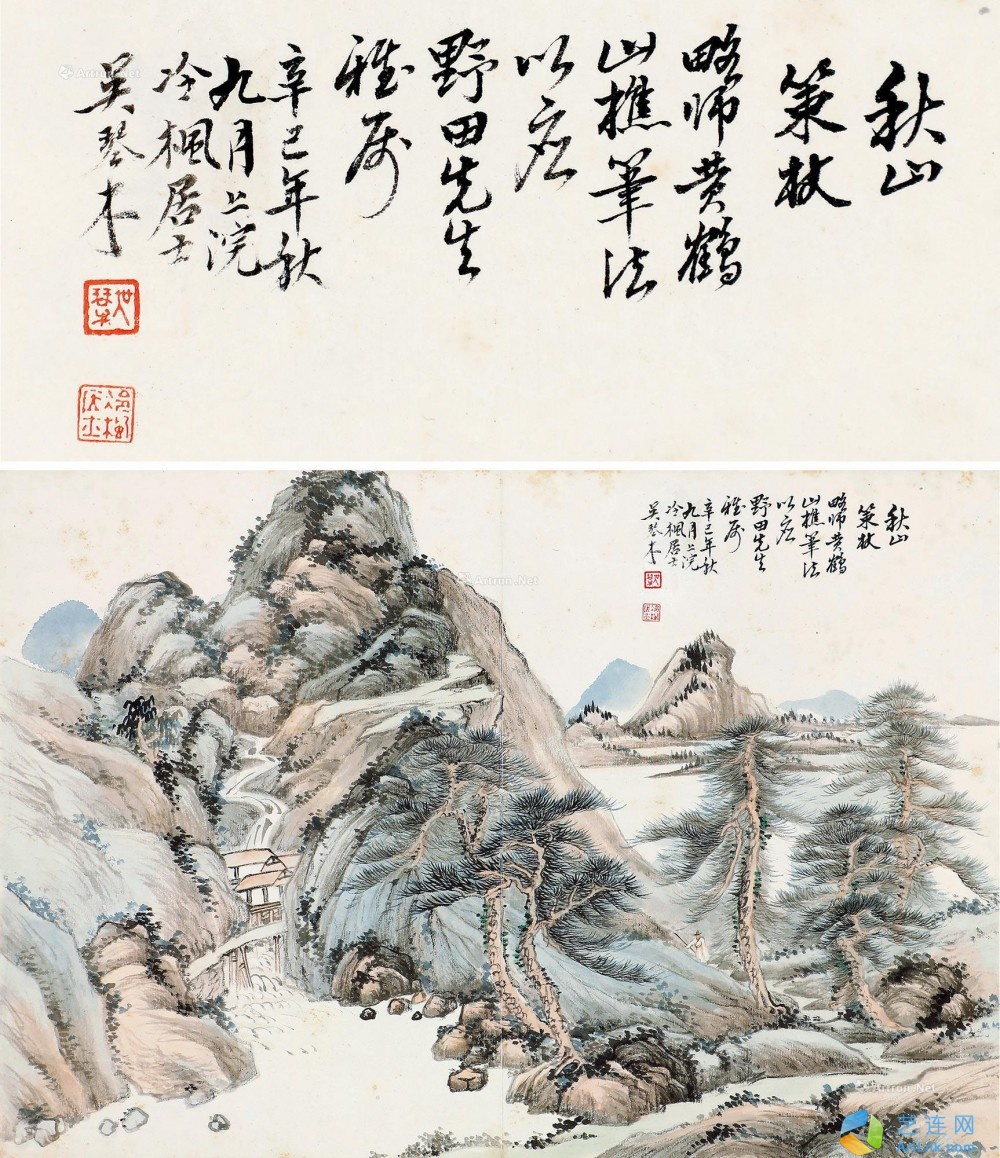 秋山
策杖
略师黄鹤
山樵筆法
以应
野田先生
雅属
辛巳年秋
九月上浣
冷楓居士
吴琴木
Artron.Net
秋山
策杖
略师黄鹤
山樵筆法
以应
野田先生
雅属
辛巳年秋
九月上浣
冷楓居士
吴琴木
Artron.Net
Artron.Net
艺连网